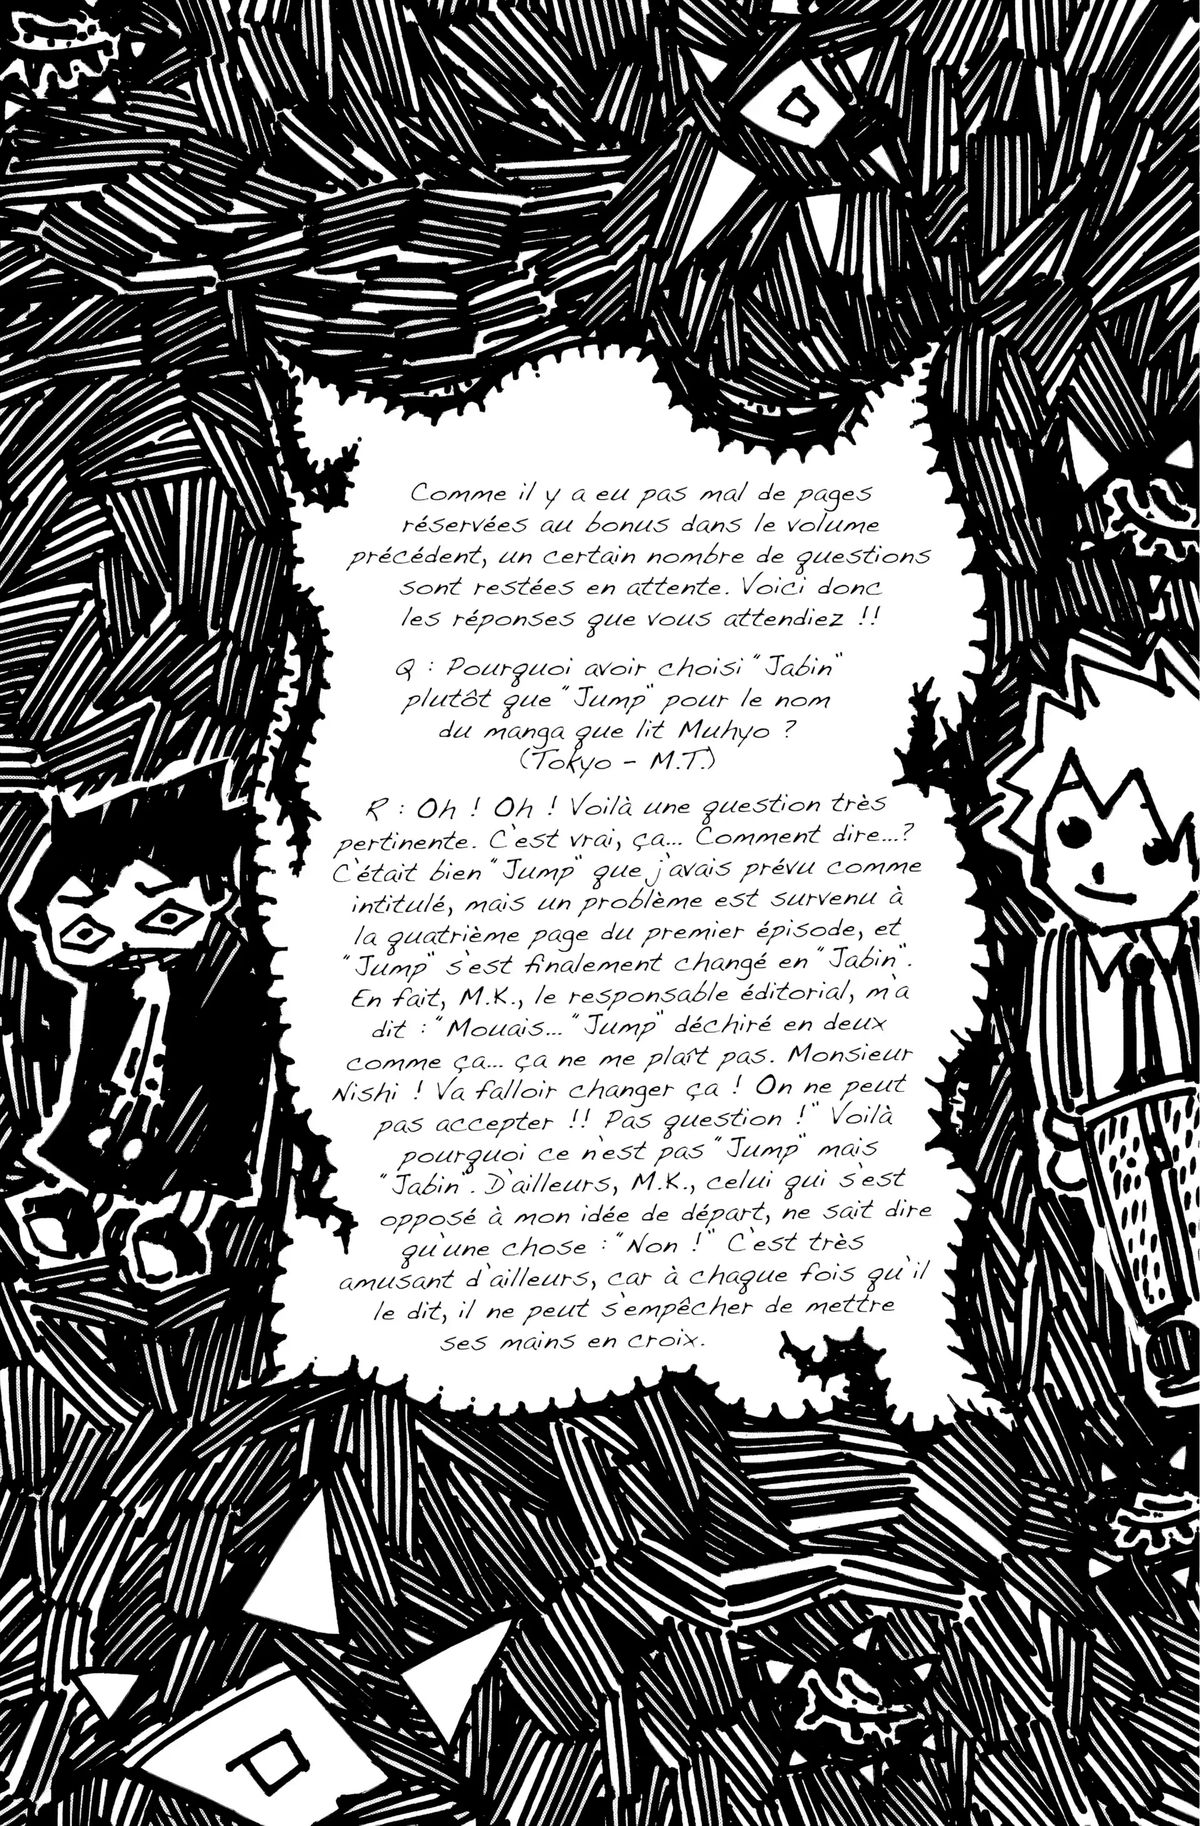 Comme il y a eu pas mal de pages
réservées au bonus dans le volume
précédent, un certain nombre de questions
sont restées en attente. Voici donc
les réponses que vous attendiez !!
Q : Pourquoi avoir choisi "Jabin"
plutôt que "Jump" pour le nom
du manga que lit Muhyo ?
(Tokyo - M.T.)
R : Oh ! Oh ! Voilà une question très
pertinente. C'est vrai, ça... Comment dire...?
C'était bien "Jump" que j'avais prévu comme
intitulé, mais un problème est survenu à
la quatrième page du premier épisode, et
"Jump" s'est finalement changé en "Jabin".
En fait, M.K., le responsable éditorial, m'a
dit : "Mouais... "Jump" déchiré en deux
comme ça... ça ne me plaît pas. Monsieur
Nishi ! Va falloir changer ça ! On ne peut
pas accepter !! Pas question !" Voilà
pourquoi ce n'est pas "Jump" mais
"Jabin". D'ailleurs, M.K., celui qui s'est
opposé à mon idée de départ, ne sait dire
qu'une chose : "Non !" C'est très
amusant d'ailleurs, car à chaque fois qu'il
le dit, il ne peut s'empêcher de mettre
ses mains en croix.